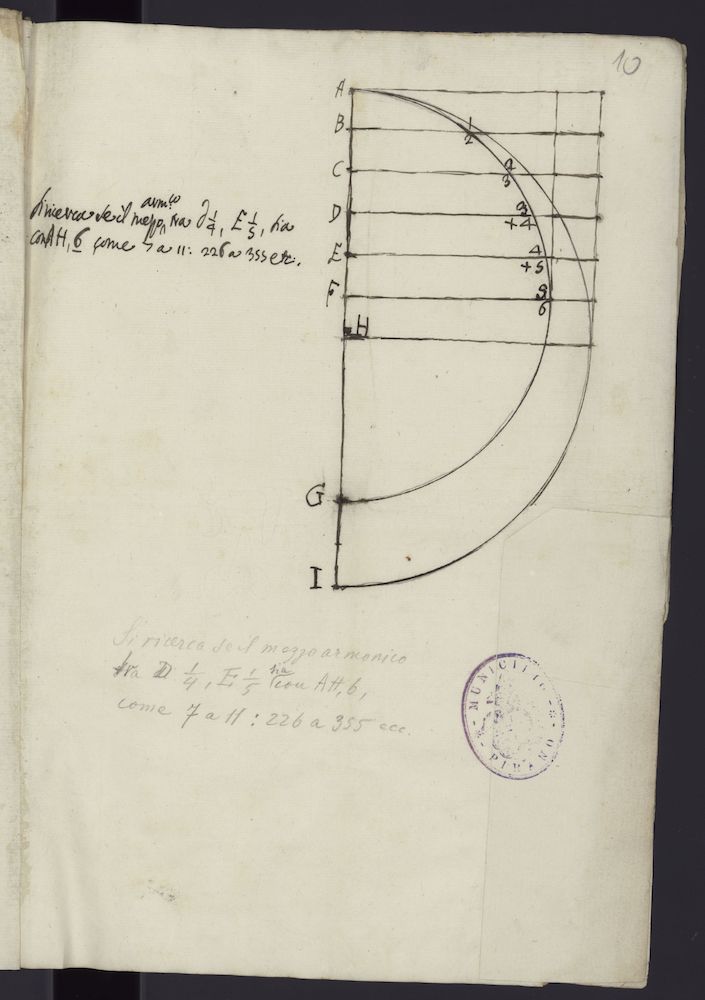 10
A
B
1
2
C
2
3
D
3
+4
E
4
+5
F
5
6
H
G
I
armco
Si ricerca se il mezzo, tra D 1/4, E 1/5, sia
con AH, 6 come 7 a 11: 226 a 355 etc.
Si ricerca se il mezzo armonico
tra D 1/4, E 1/5 sia con AH, 6,
come 7 a 11: 226 a 355 ecc.
MUNICIPIO
PIRANO